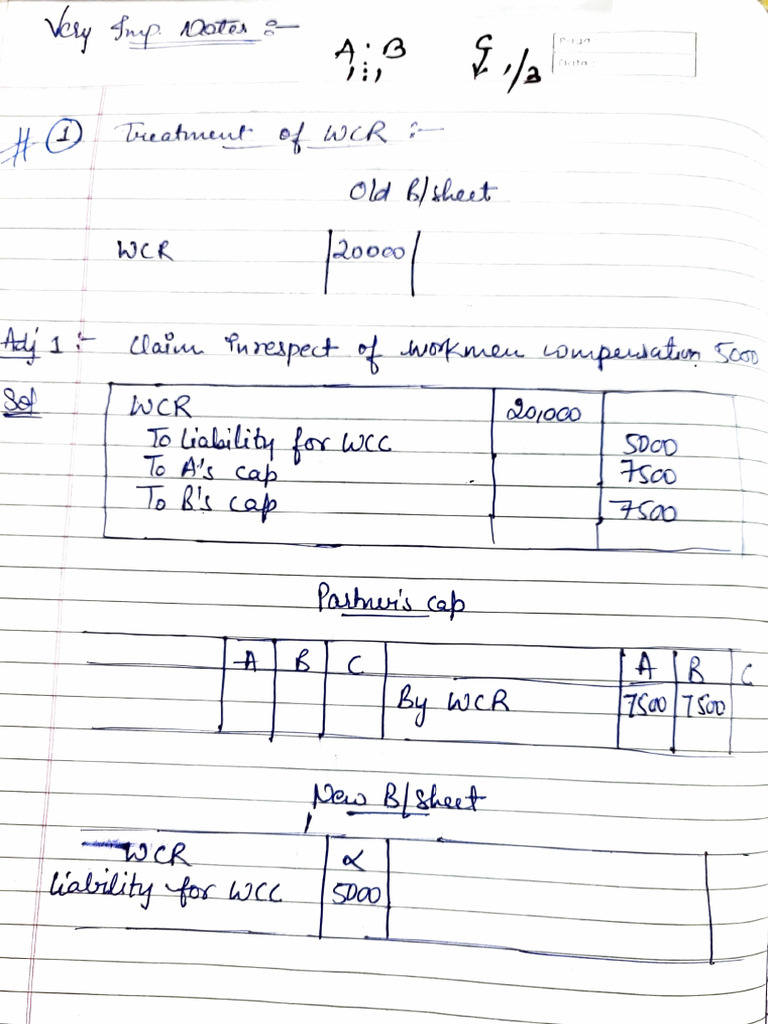 Very Imp. Notes :-
A : B
1 : 1
C 1/3
Page
Date:
# ① Treatment of WCR :-
Old B/sheet
WCR 20000
Adj 1 :- Claim in respect of workmen compensation 5000
Sol WCR 20,000
To Liability for WCC 5000
To A's cap 7500
To B's cap 7500
Partner's cap
A B C A B C
By WCR 7500 7500
New B/sheet
WCR
liability for WCC 5000